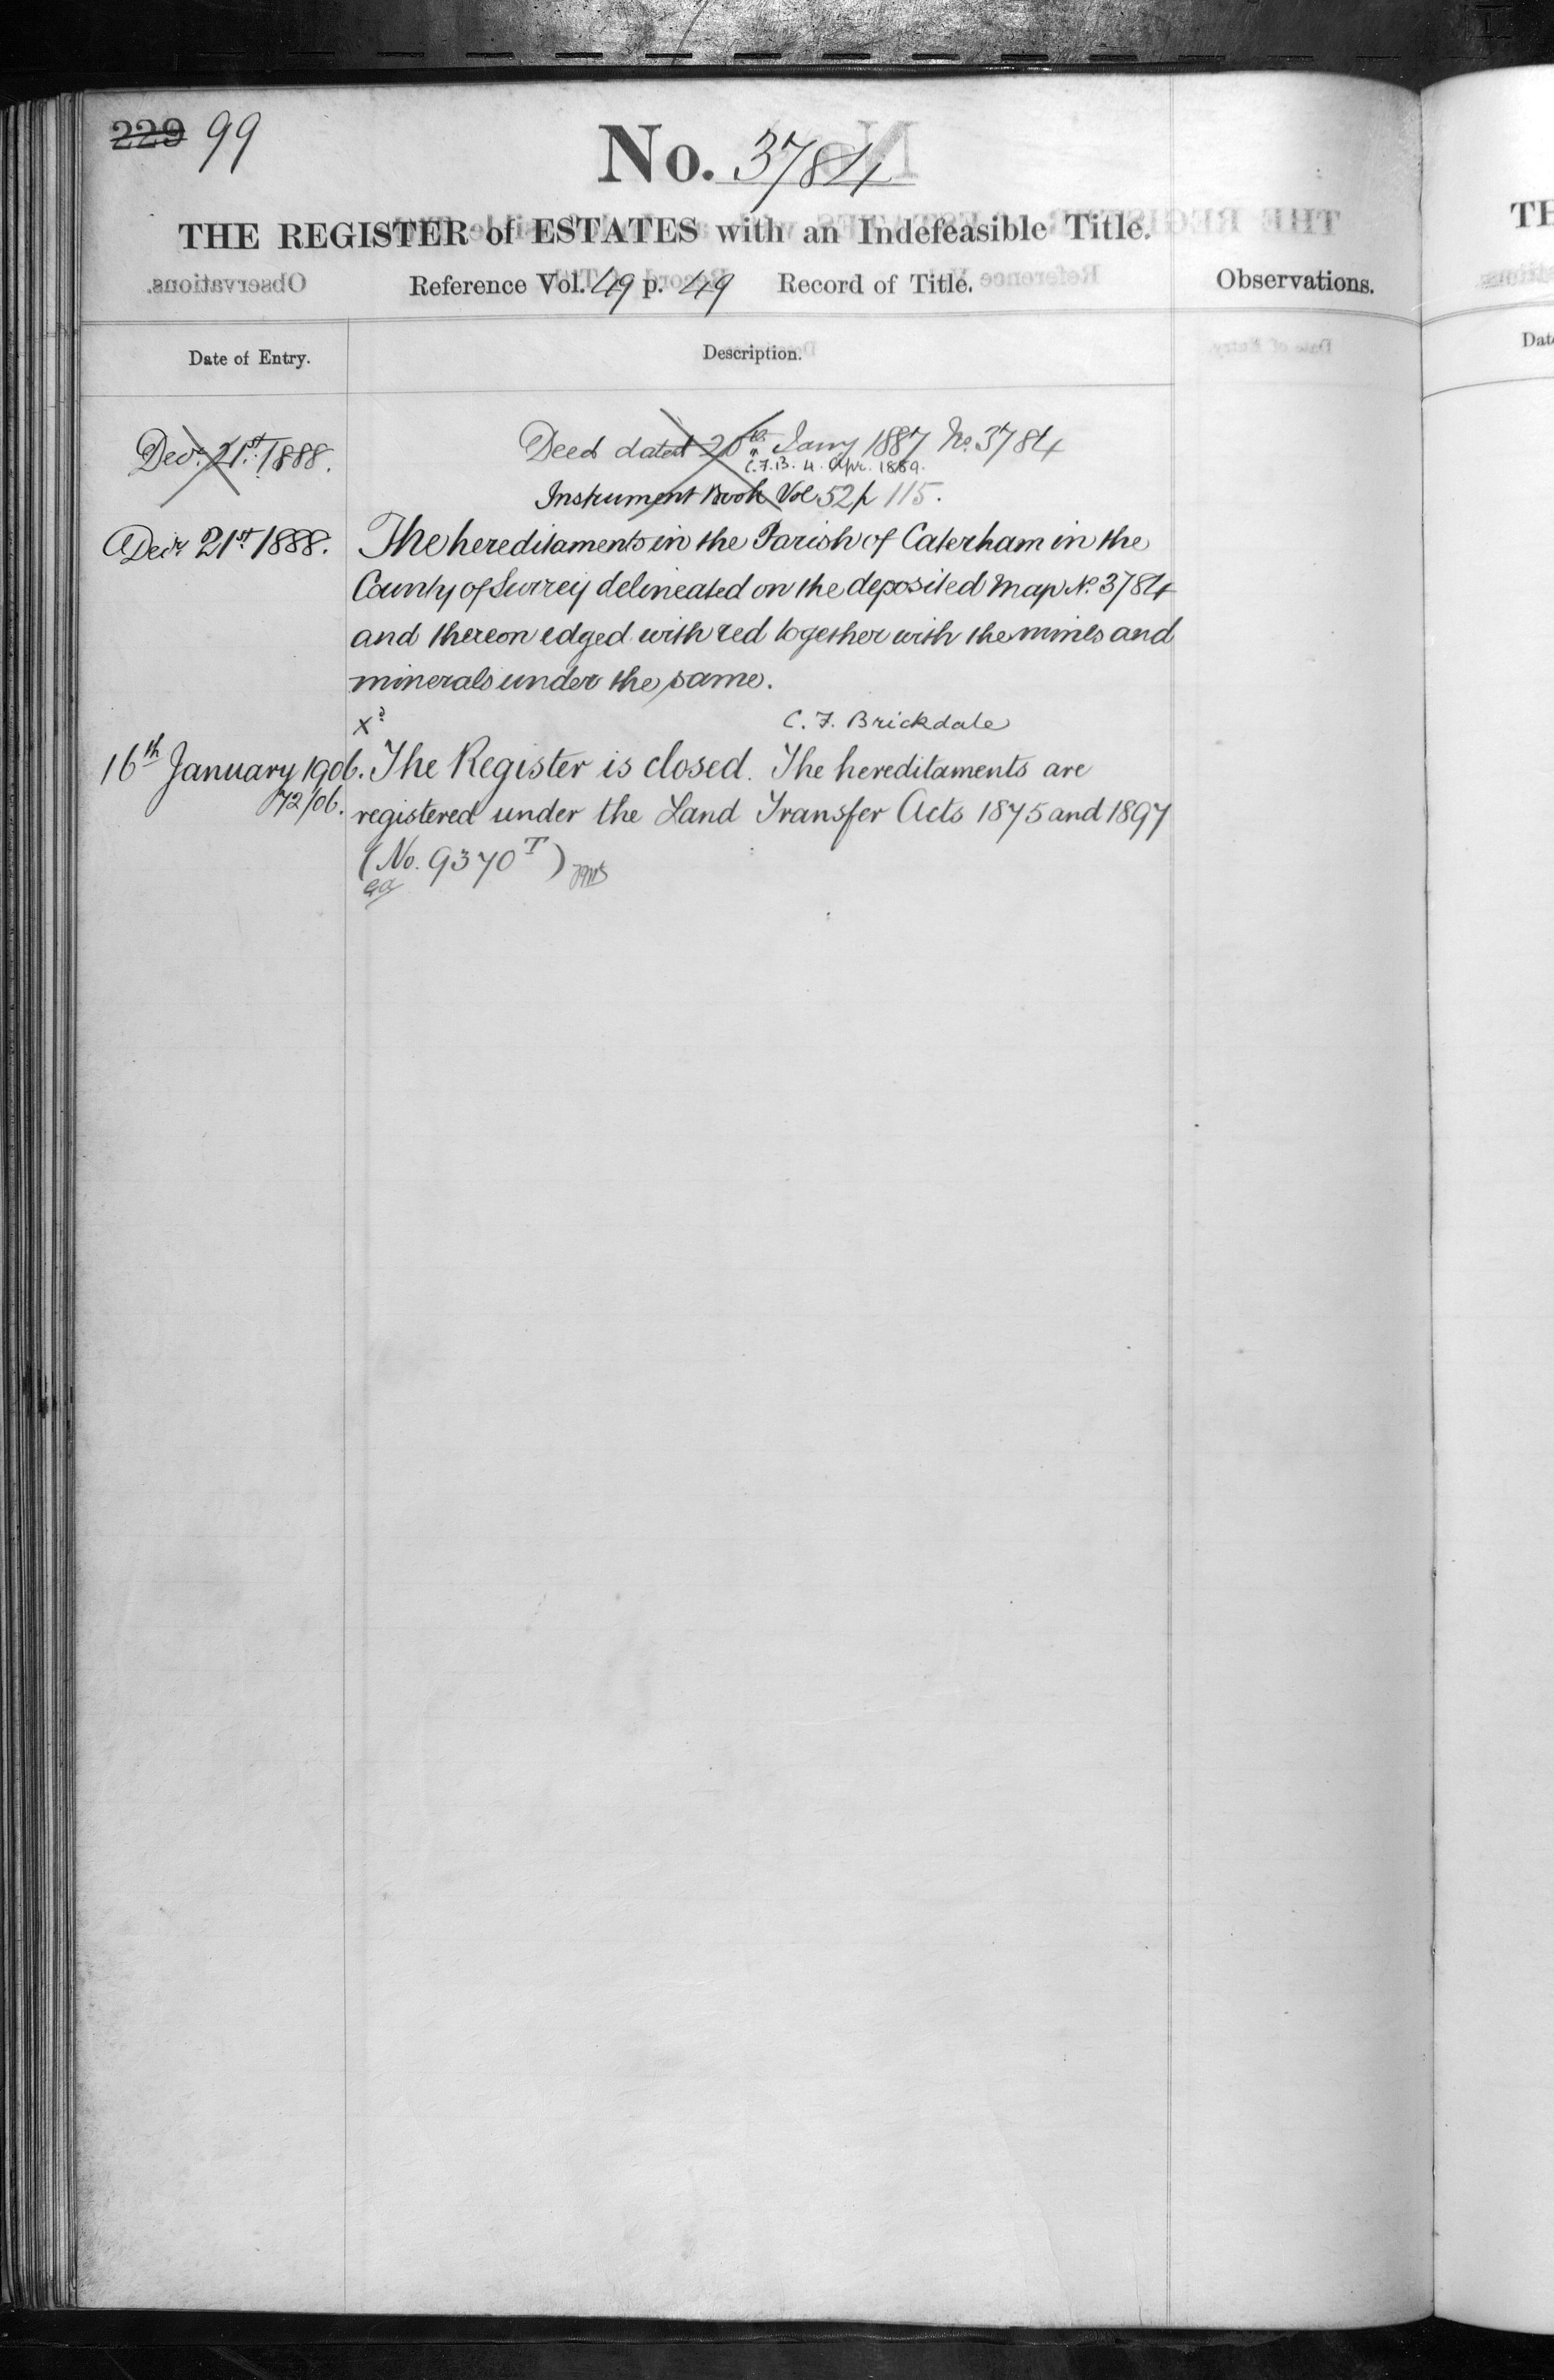 229 99
No. 3784
THE REGISTER of ESTATES with an Indefeasible Title.
Reference Vol. 49 p. 49 Record of Title.
Observations.
Date of Entry.
Description.
Decr. 21st. 1888.
Deed dated 20th Jany 1887 No. 3784
C.F.B. 4. Apr. 1889.
Instrument Book Vol 52 p 115.
Decr 21st 1888. The hereditaments in the Parish of Caterham in the
County of Surrey delineated on the deposited Map No. 3784
and thereon edged with red together with the mines and
minerals under the same.
x
C. F. Brickdale
16th January 1906. The Register is closed. The hereditaments are
72/06. registered under the Land Transfer Acts 1875 and 1897
(No. 9370 T)
TH
Dat